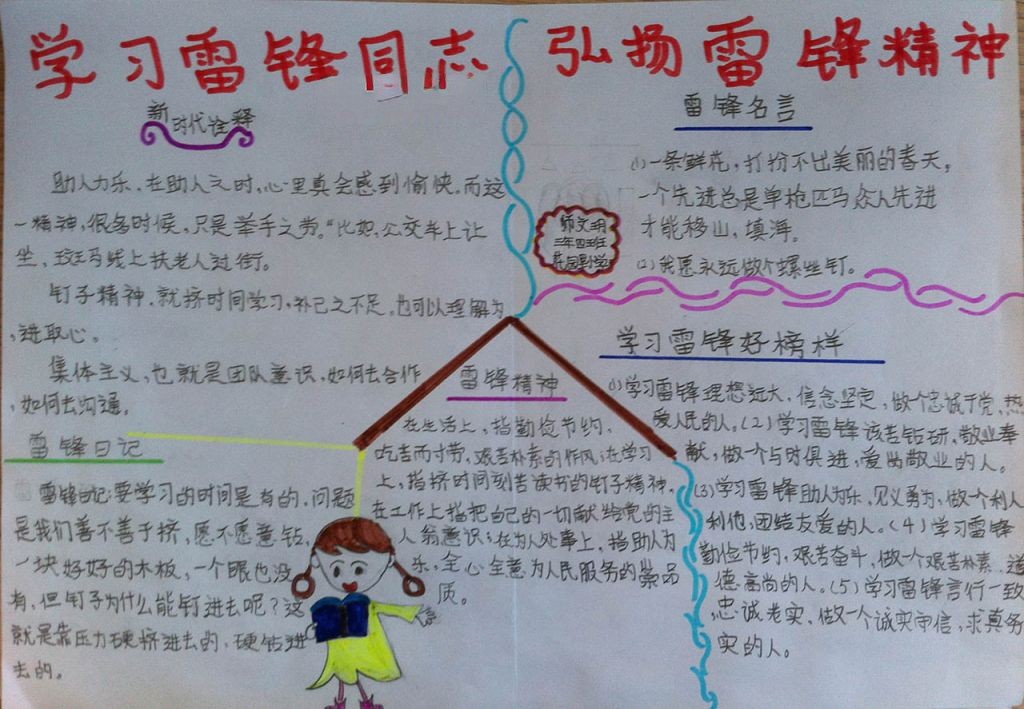 学习雷锋同志
弘扬雷锋精神
新时代诠释
助人为乐，在助人之时，心里真会感到愉快，而这
一精神，很多时候，只是举手之劳。"比如，公交车上让
坐，斑马线上扶老人过街。
钉子精神，就挤时间学习，补己之不足，也可以理解为
，进取心。
集体主义，也就是团队意识，如何去合作
，如何去沟通。
雷锋日记
雷锋日记：要学习的时间是有的，问题
是我们善不善于挤，愿不愿意钻，
一块好好的木板，一个眼也没
有，但钉子为什么能钉进去呢？这
就是靠压力硬挤进去的，硬钻进
去的。
雷锋精神
在生活上，指勤俭节约、
吃苦而寸劳，艰苦朴素的作风；在学习
上，指挤时间刻苦读书的钉子精神，
在工作上指把自己的一切献给党的主
人翁意识；在为人处事上，指助人为
乐，全心全意为人民服务的崇品
质。
雷锋名言
(1)一条鲜花，打扮不出美丽的春天，
一个先进总是单枪匹马众人先进
才能移山，填海。
(2)我愿永远做个螺丝钉。
三年四班
学习雷锋好榜样
(1)学习雷锋理想远大，信念坚定，做个忠诚于党，热
爱人民的人。(2)学习雷锋该苦钻研，敬业奉
献，做一个与时俱进，爱岗敬业的人。
(3)学习雷锋助人为乐，见义勇为，做个利人
利他，团结友爱的人。(4)学习雷锋
勤俭节约，艰苦奋斗，做一个艰苦朴素，道
德高尚的人。(5)学习雷锋言行一致
，忠诚老实，做一个诚实守信，求真务
实的人。